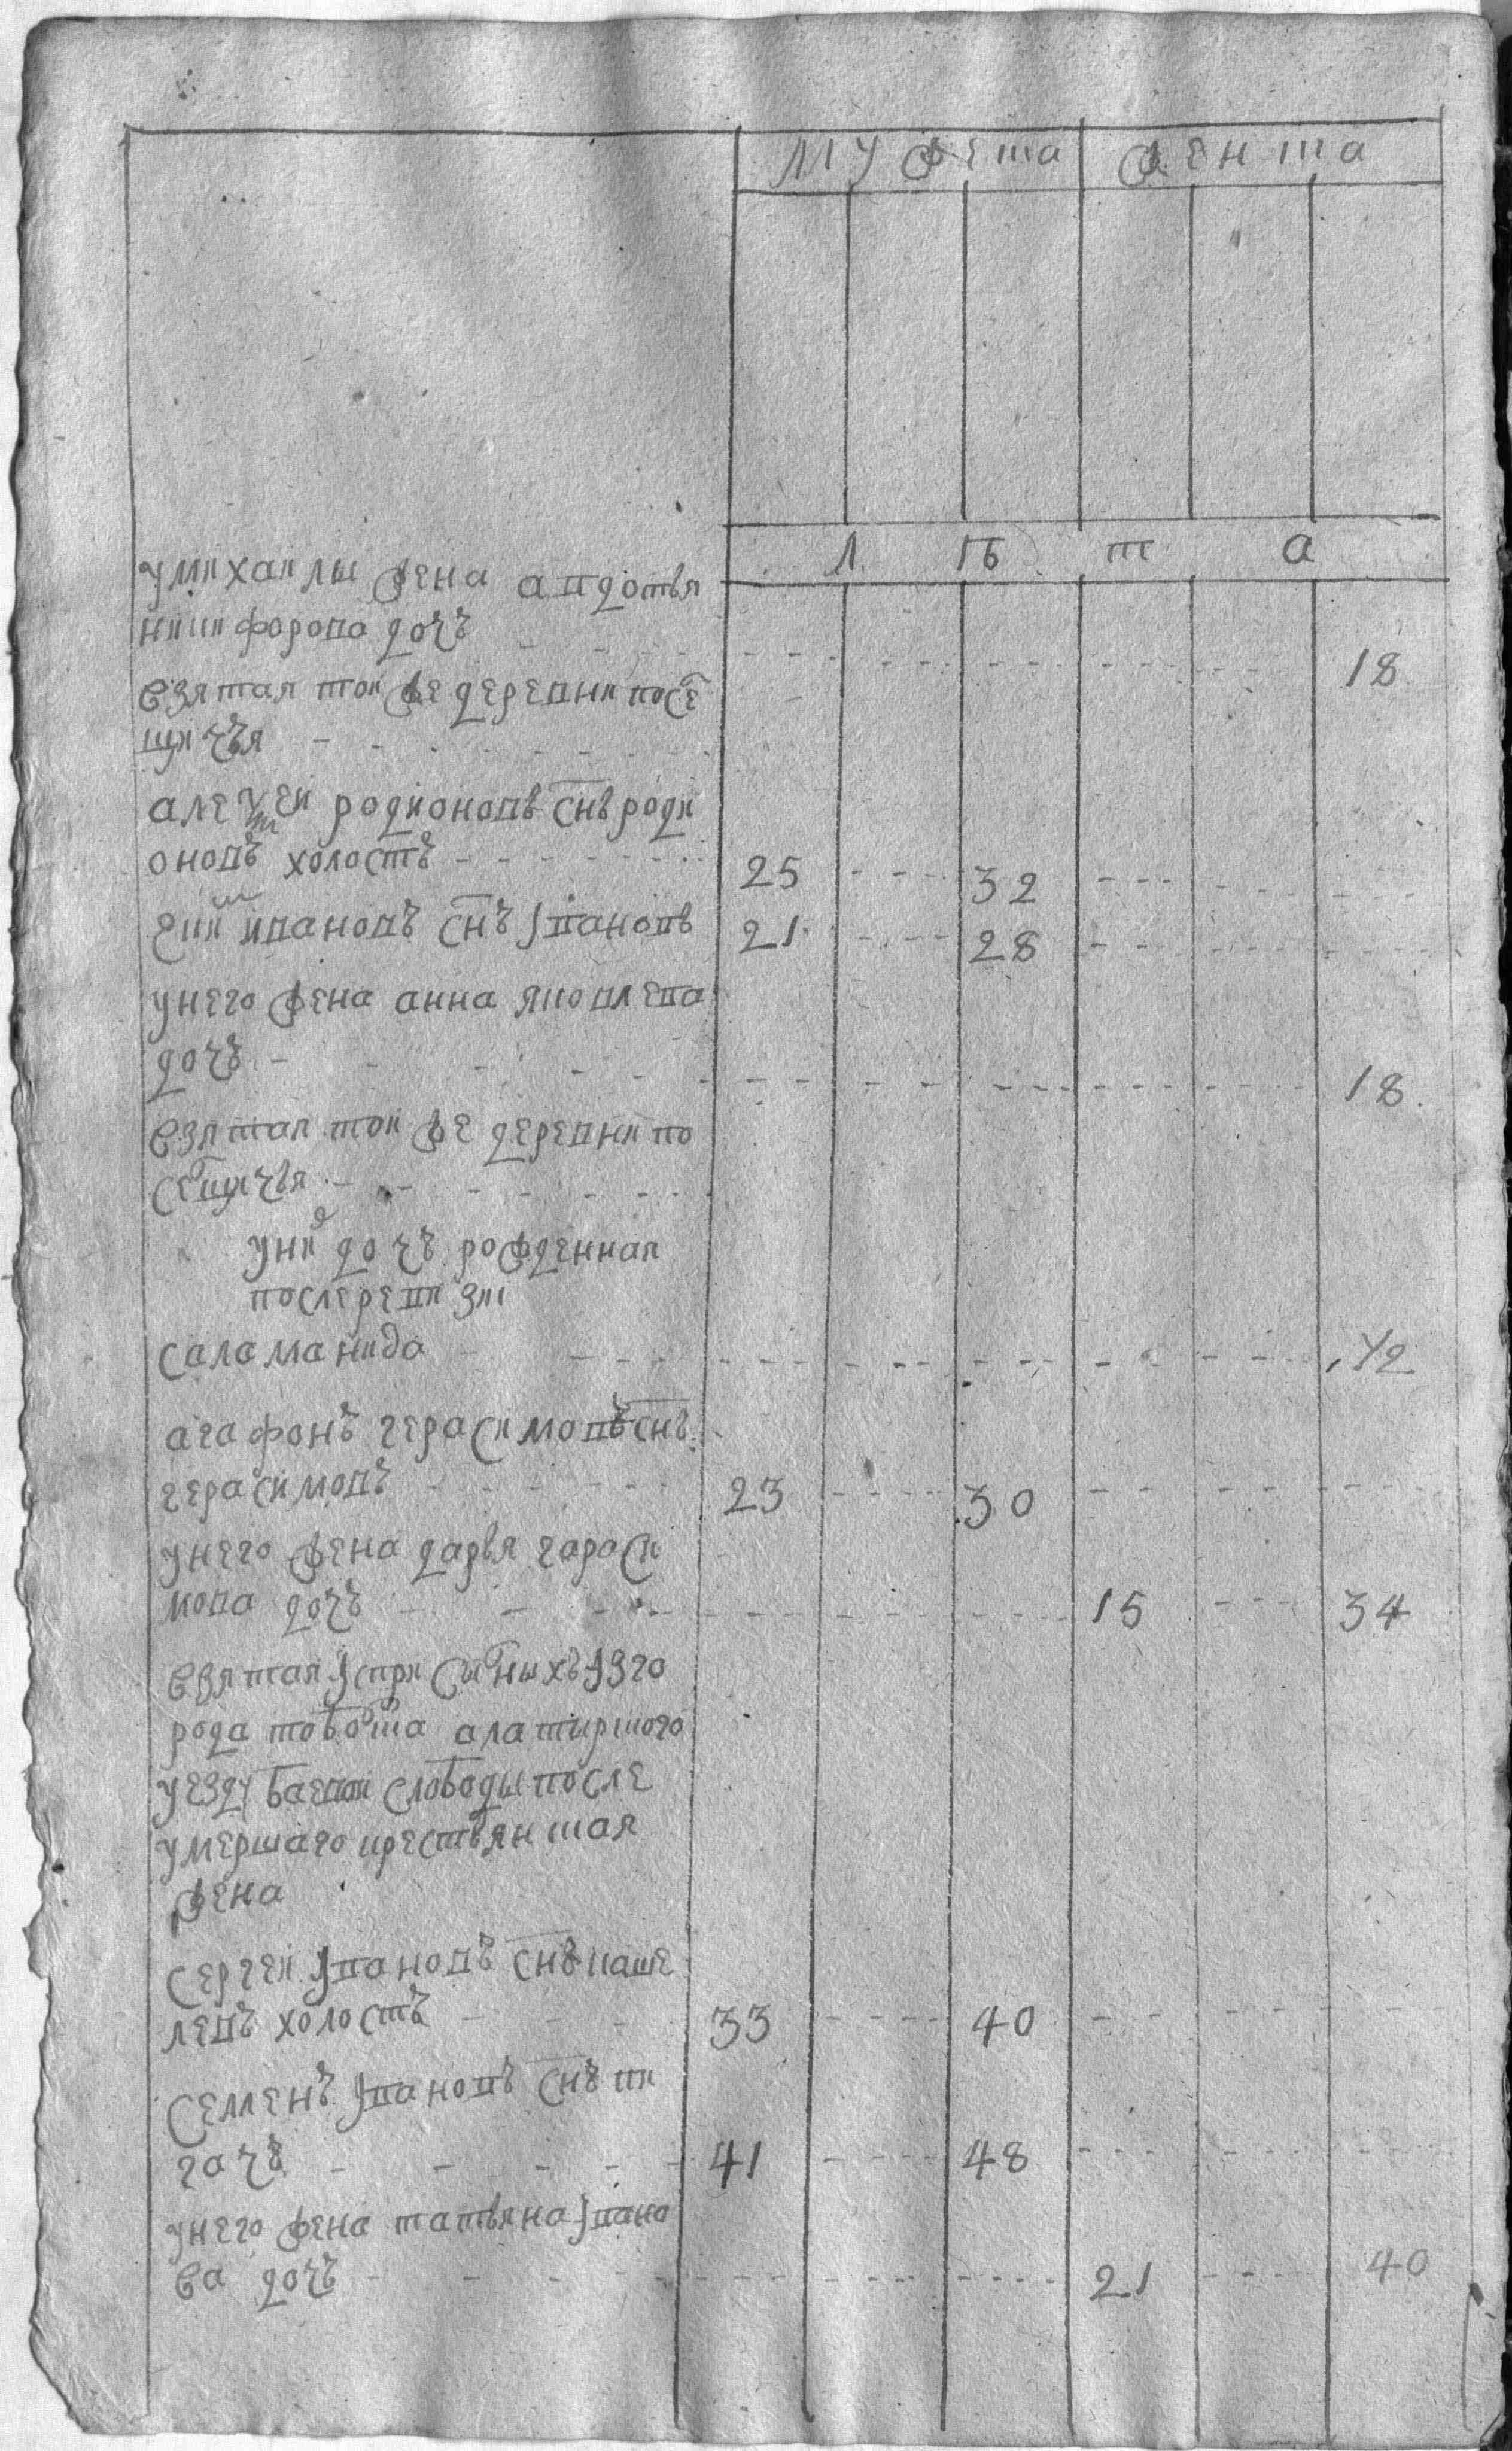 мужеска женска
л ѣ т а
умихаилы жена авдотья
никифорова дочь 18
взятая тои же деревни посе
щичья
алексеи родионовъ снъ роди
оновъ холостъ 25 32
ивановъ снъ ивановъ 21 28
унего жена анна яковлева
дочь 18
взятая тои же деревни по
сещичья
уних дочь рожденная
послеревизи
саламанида 1/2
агафонъ герасимовъ снъ
герасимовъ 23 30
унего жена дарья гараси
мова дочь 15 34
взятая
рода алатырского
уезду слободы после
умершаго крестьянская
жена
сергеи ивановъ снъ каше
левъ холостъ 33 40
семенъ ивановъ снъ пи
гачъ 41 48
унего жена татьяна ивано
ва дочь 21 40